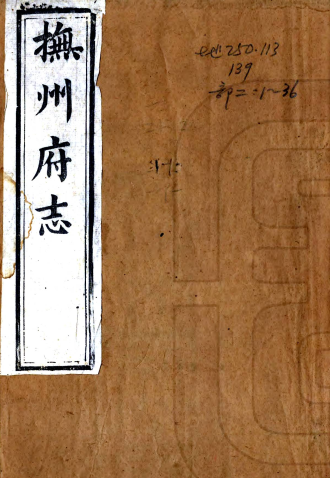 撫州府志
地250.113
139
部二:1~36